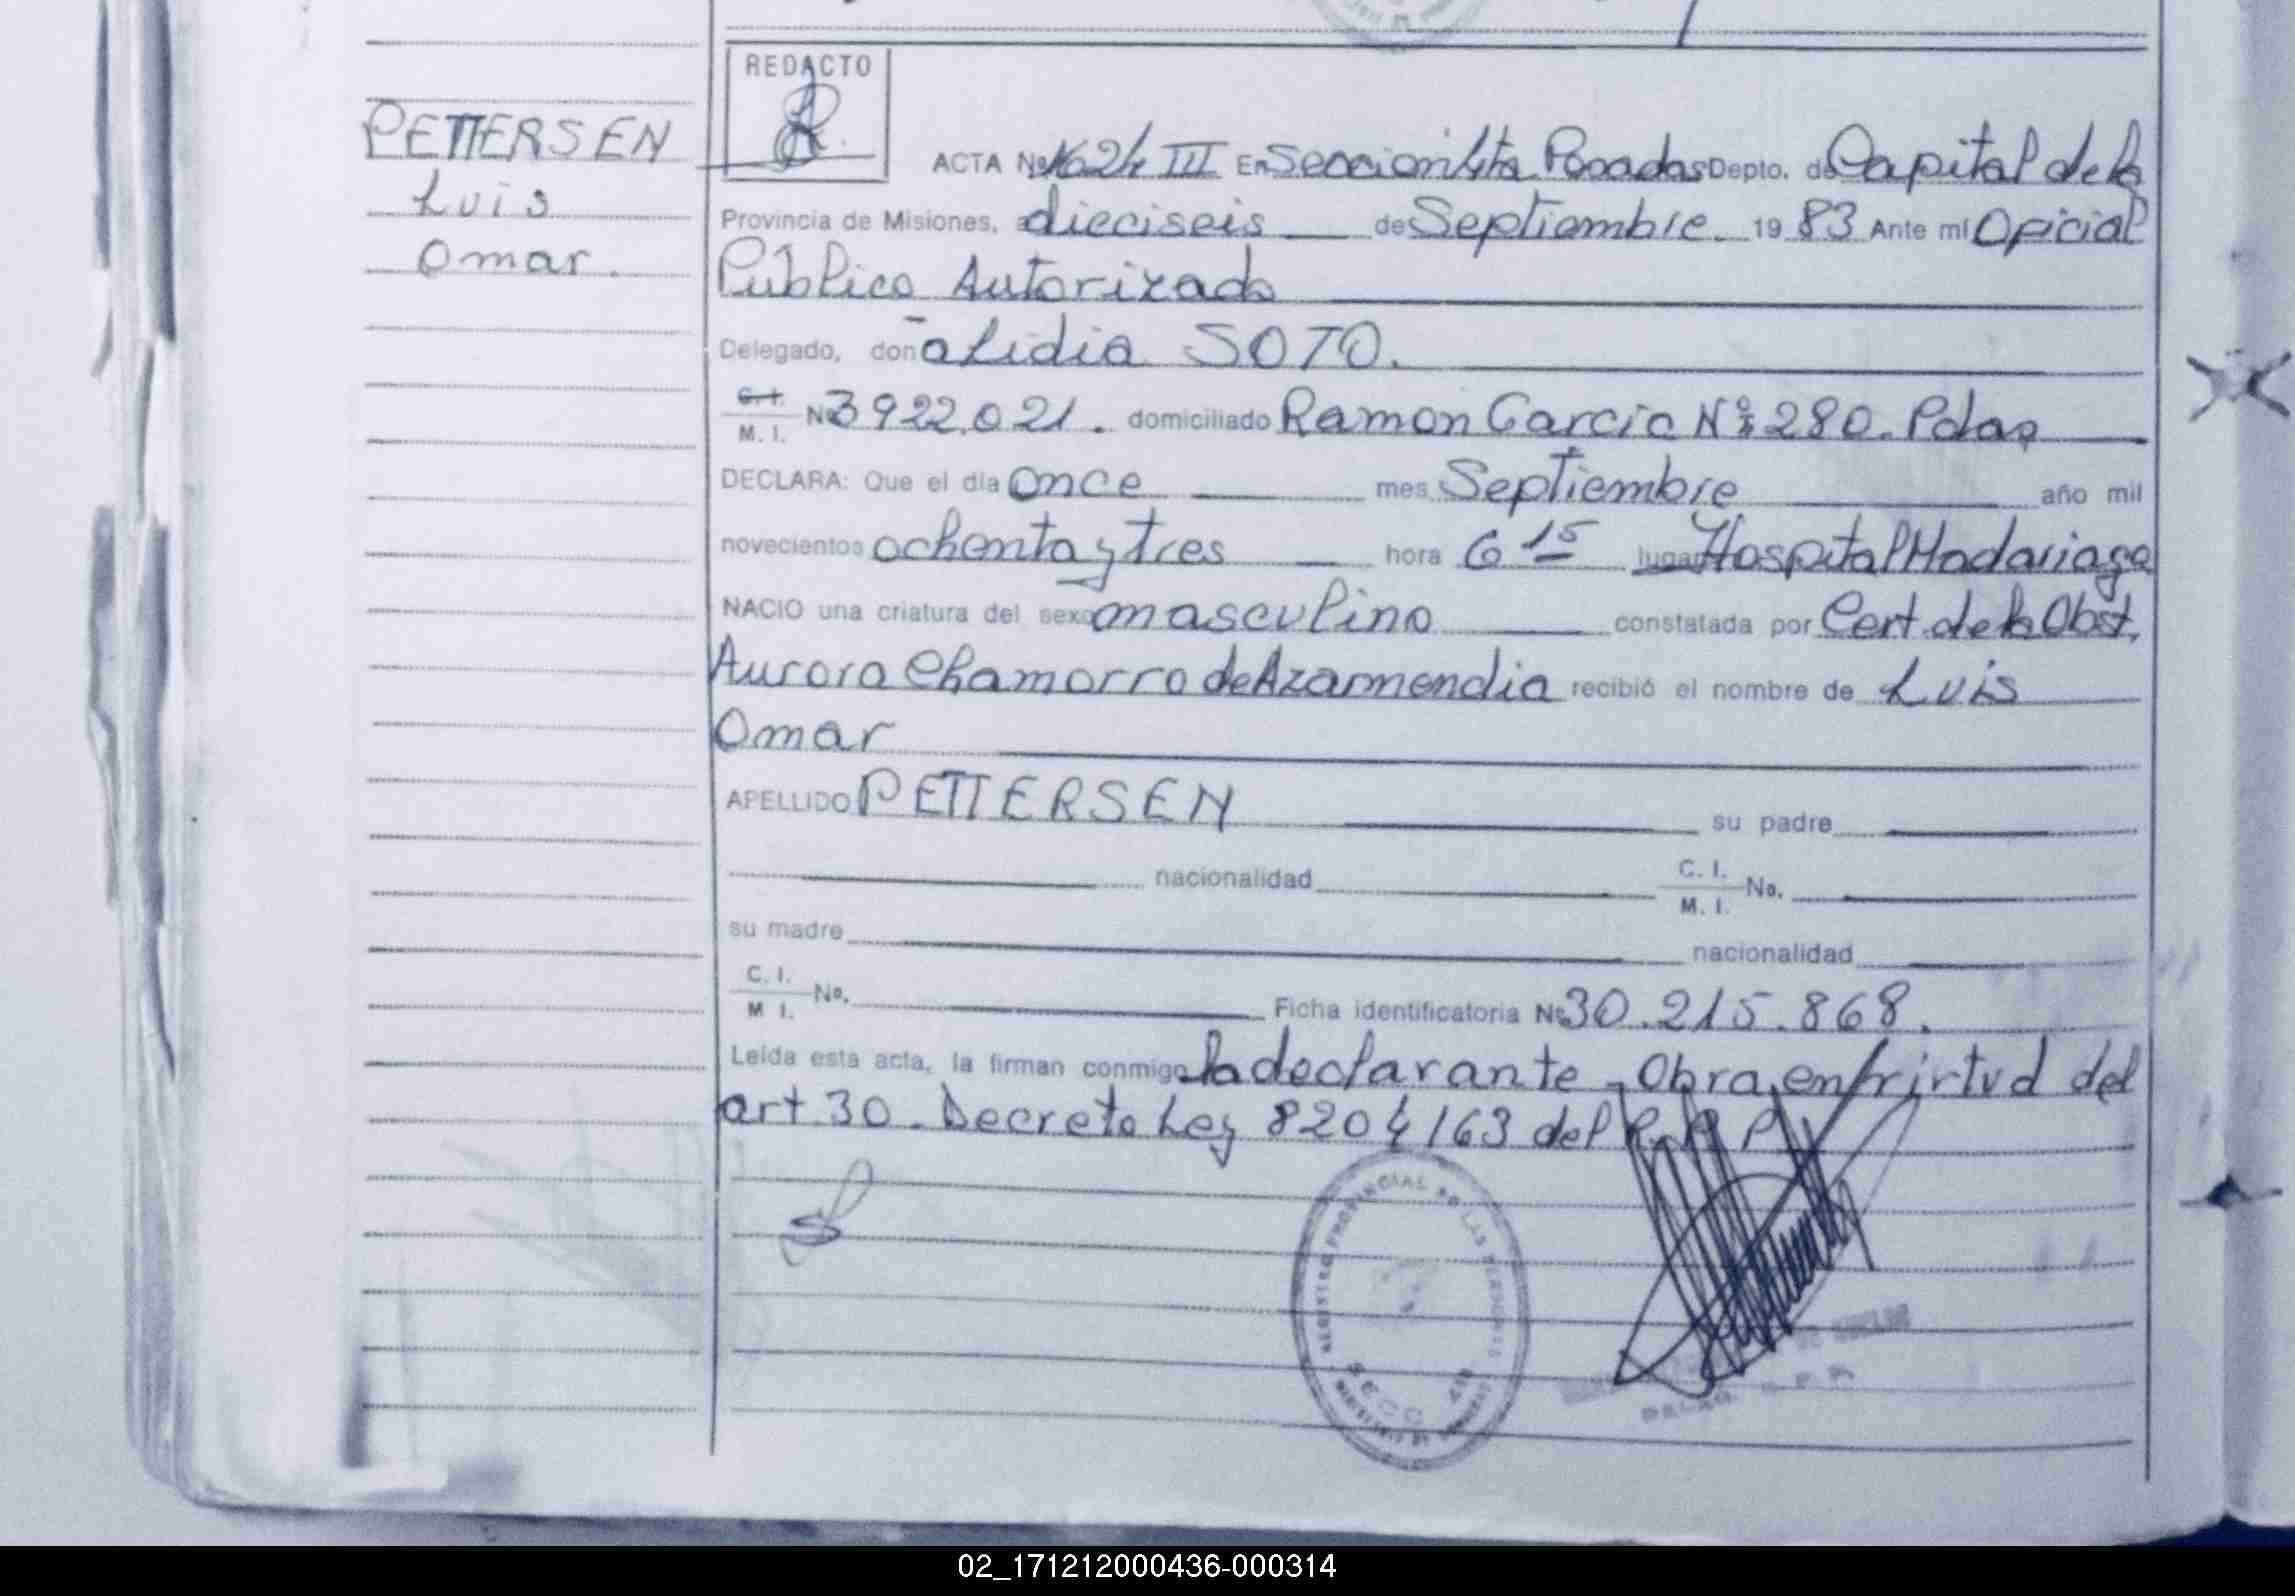 REDACTO
PETTERSEN
Luis
Omar.
ACTA Nº 1624 III En Seccion 4ta Posadas Depto. de Capital de la
Provincia de Misiones, a dieciseis de Septiembre 19 83 Ante mí Oficial
Público Autorizado
Delegado, doña Lidia SOTO.
C. I.
M. I. Nº 3922.021. domiciliado Ramon Garcia Nº 280. Pdas
DECLARA: Que el día once mes Septiembre año mil
novecientos ochenta y tres hora 6 15 lugar Hospital Madariaga
NACIO una criatura del sexo masculino constatada por Cert. de la Obst.
Aurora Chamorro de Azarmendia recibió el nombre de Luis
Omar
APELLIDO PETTERSEN su padre
nacionalidad C. I.
M. I. No.
su madre nacionalidad
C. I.
M I. No. Ficha identificatoria Nº 30.215.868.
Leída esta acta, la firman conmigo la declarante - Obra en virtud del
art. 30. Decreto Ley 8204/63 del R. N. P.
REGISTRO PROVINCIAL DE LAS PERSONAS
SECC 4ta
02_171212000436-000314